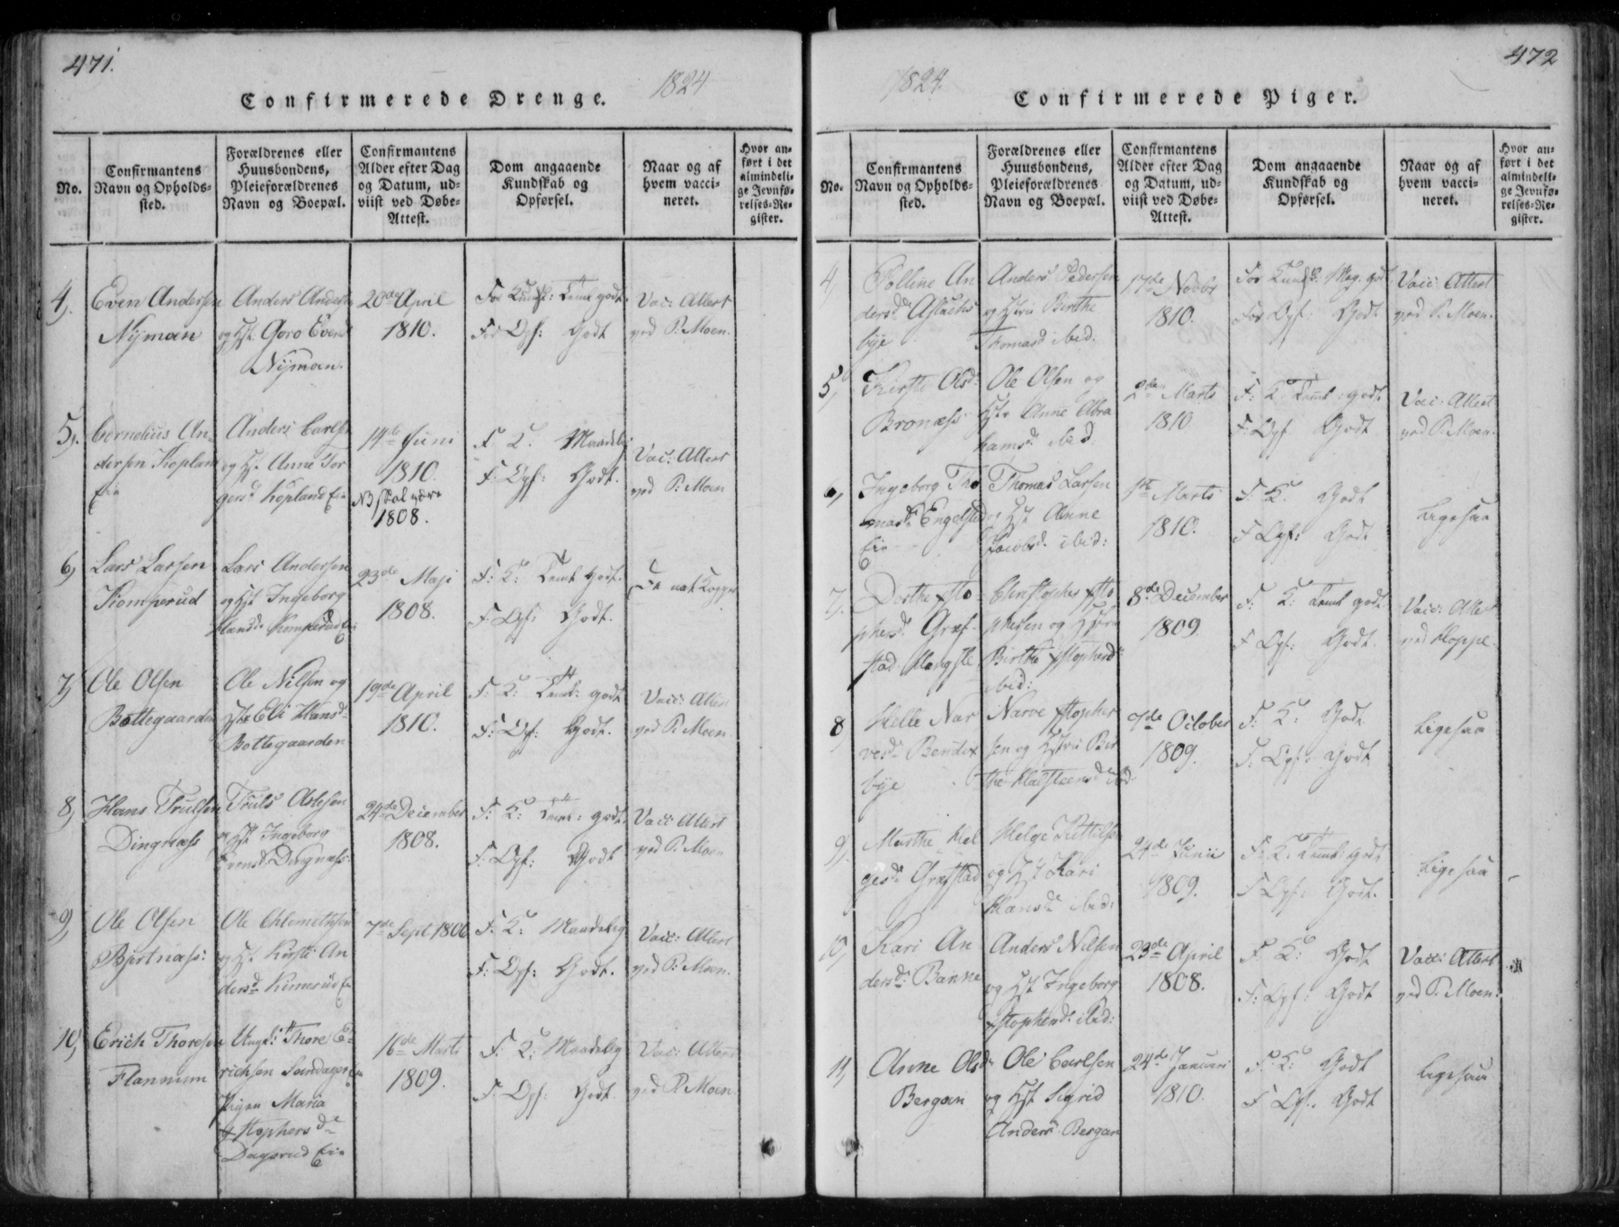 471.
1824
Confirmerede Drenge.
No.
Confirmantens
Navn og Opholds-
sted.
Forældrenes eller
Huusbondens,
Pleieforældrenes
Navn og Boepæl.
Confirmantens
Alder efter Dag
og Datum, ud-
viist ved Døbe-
Attest.
Dom angaaende
Kundskab og
Opførsel.
Naar og af
hvem vacci-
neret.
Hvor an-
ført i det
almindeli-
ge Jevnfø-
relses-Re-
gister.
4,
Even Andersen
Nÿmoen
Anders Anders
og Goro Evens
Nÿmoen.
20de April
1810.
For Kundsk: godt
For Opf: Godt
Vac: Attest
ved P: Moen.
5,
Cornelius An-
dersen Kopland
Eie
Anders Carls
og Hst Anne Tor
gersd Kopland Eie
14de Juni
1810.
NB skal være
1808.
F. K: Maadelig
F: Opf: Godt.
Vac: Attest
ved P: Moen
6,
Lars Larsen
Komperud
Lars Andersen
og Hst Ingeborg
Hansd. Komperud Eie
23de Maji
1808.
F: K: godt.
F: Opf: Godt.
7,
Ole Olsen
Bottegaarden
Ole Nilsen og
Eli Hansd:
Bottegaarden
19de April
1810.
F: K: godt
F: Opf: Godt.
Vacc: Attest
ved P: Moen.
8,
Hans Trulsen
Dingnæss
Truls Aslesen
og Hst Ingeborg
Evensd: Dingnæss:
24de December
1808.
F: K: godt.
F: Opf: Godt
Vacc: Attest
ved P: Moen
9,
Ole Olsen
Bjertnæss:
Ole
og Hst Kirsti An
dersd: Eie
7de Sept 1806
F: K: Maadelig
F: Opf: Godt.
Vacc: Attest
ved P: Moen.
10,
Erich Thoresen
Flannum
Ungk: Thore E-
richsen
Pigen Maria
Xstophersd:
Dagsrud Eie
16de Marts
1809.
F: K: Maadelig
F: Opf: Godt.
Vac: Attest
ved P: Moen
472
1824.
Confirmerede Piger.
No.
Confirmantens
Navn og Opholds-
sted.
Forældrenes eller
Huusbondens,
Pleieforældrenes
Navn og Boepæl.
Confirmantens
Alder efter Dag
og Datum, ud-
viist ved Døbe-
Attest.
Dom angaaende
Kundskab og
Opførsel.
Naar og af
hvem vacci-
neret.
Hvor an-
ført i det
almindeli-
ge Jevnfø-
relses-Re-
gister.
4,
Polline An
dersd: Aslachs
bye
Anders Pedersen
og Birthe
Thomasd ibid:
17de Novbr
1810.
For Kundsk: Meg. god
For Opf: Godt
Vacc: Attest
ved P: Moen.
5,
Kirsti Olsd:
Bronæss
Ole Olsen og
Hst Anne Abra
hamsd: ibid.
2den Marts
1810
F: K: godt
F: Opf Godt
Vac: Attest
ved P: Moen.
6,
Ingeborg Tho
masd: Engelstad
Eie
Thomas Larsen
og Hst Anne
Jacobsd. ibid:
Marts
1810.
F: K: Godt
F Opf: Godt
Ligesaa
7,
Dorthe Xsto-
phersd: Græf-
stad
Christopher Xsto
phersen og
Birthe Xstophersd:
ibid:
8de December
1809
F: K: godt
F Opf: Godt.
Vacc: Attest
ved Hoppe.
8
Helle Nar
vesd: Bendix
bye
Narve Xstopher
sen og Ber
the ibid
7de October
1809.
F: K: Godt
F. Opf: Godt
Ligesaa
9,
Marthe Hel
gesd: Græfstad
Helge Kittilsen
og Hst Kari
Hansd: ibid:
24de Junii
1809.
F: K: godt
F Opf: Godt.
Ligesaa
10,
Kari An
dersd: Banne
Anders Nilsen
og Hst Ingeborg
Xstophersd: ibid:
23de April
1808.
F K: Godt
F: Opf: Godt
Vacc: Attest
ved P: Moen:
11,
Anne Olsd:
Bergan
Ole Carlsen
og Hst Sigrid
Anders Bergan
24de Januari
1810.
F: K: Godt
F Opf. Godt
Ligesaa